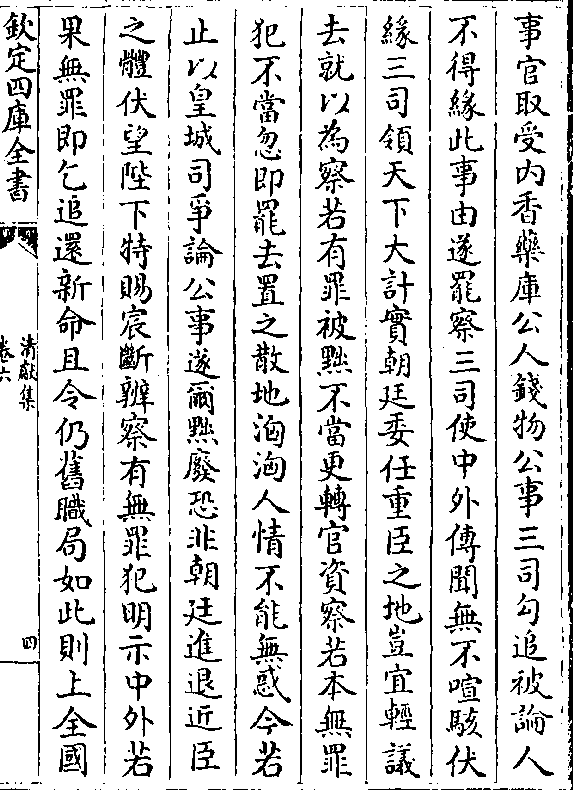 事官取受内香藥庫公人錢物公事三司勾追被論人
不得緣此事由遂罷察三司使中外傳聞無不喧駭伏
緣三司領天下大計實朝廷委任重臣之地豈宜輕議
去就以為察若有罪被黜不當更轉官資察若本無罪
犯不當忽即罷去置之散地洶洶人情不能無惑今若
止以皇城司爭論公事遂爾黜廢恐非朝廷進退近臣
之體伏望陛下特賜宸斷辨察有無罪犯明示中外若
果無罪即乞追還新命且令仍舊職局如此則上全國
欽定四庫全書
清獻集
卷六
四